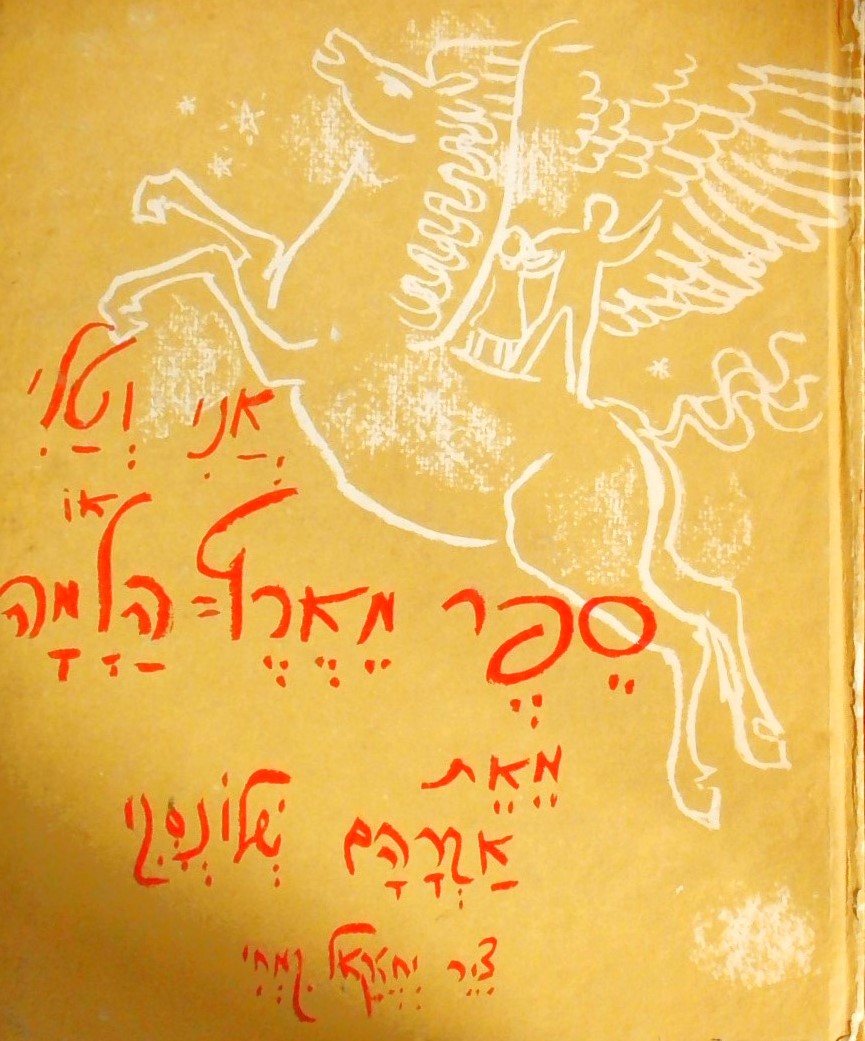 אֲנִי וְטַלִּי
אוֹ
סֵפֶר מֵאֶרֶץ=הַלָמָּה
מֵאֵת
אַבְרָהָם שְׁלוֹנְסְקִי
צִיֵּר יְחֶזְקֵאל קִמְחִי